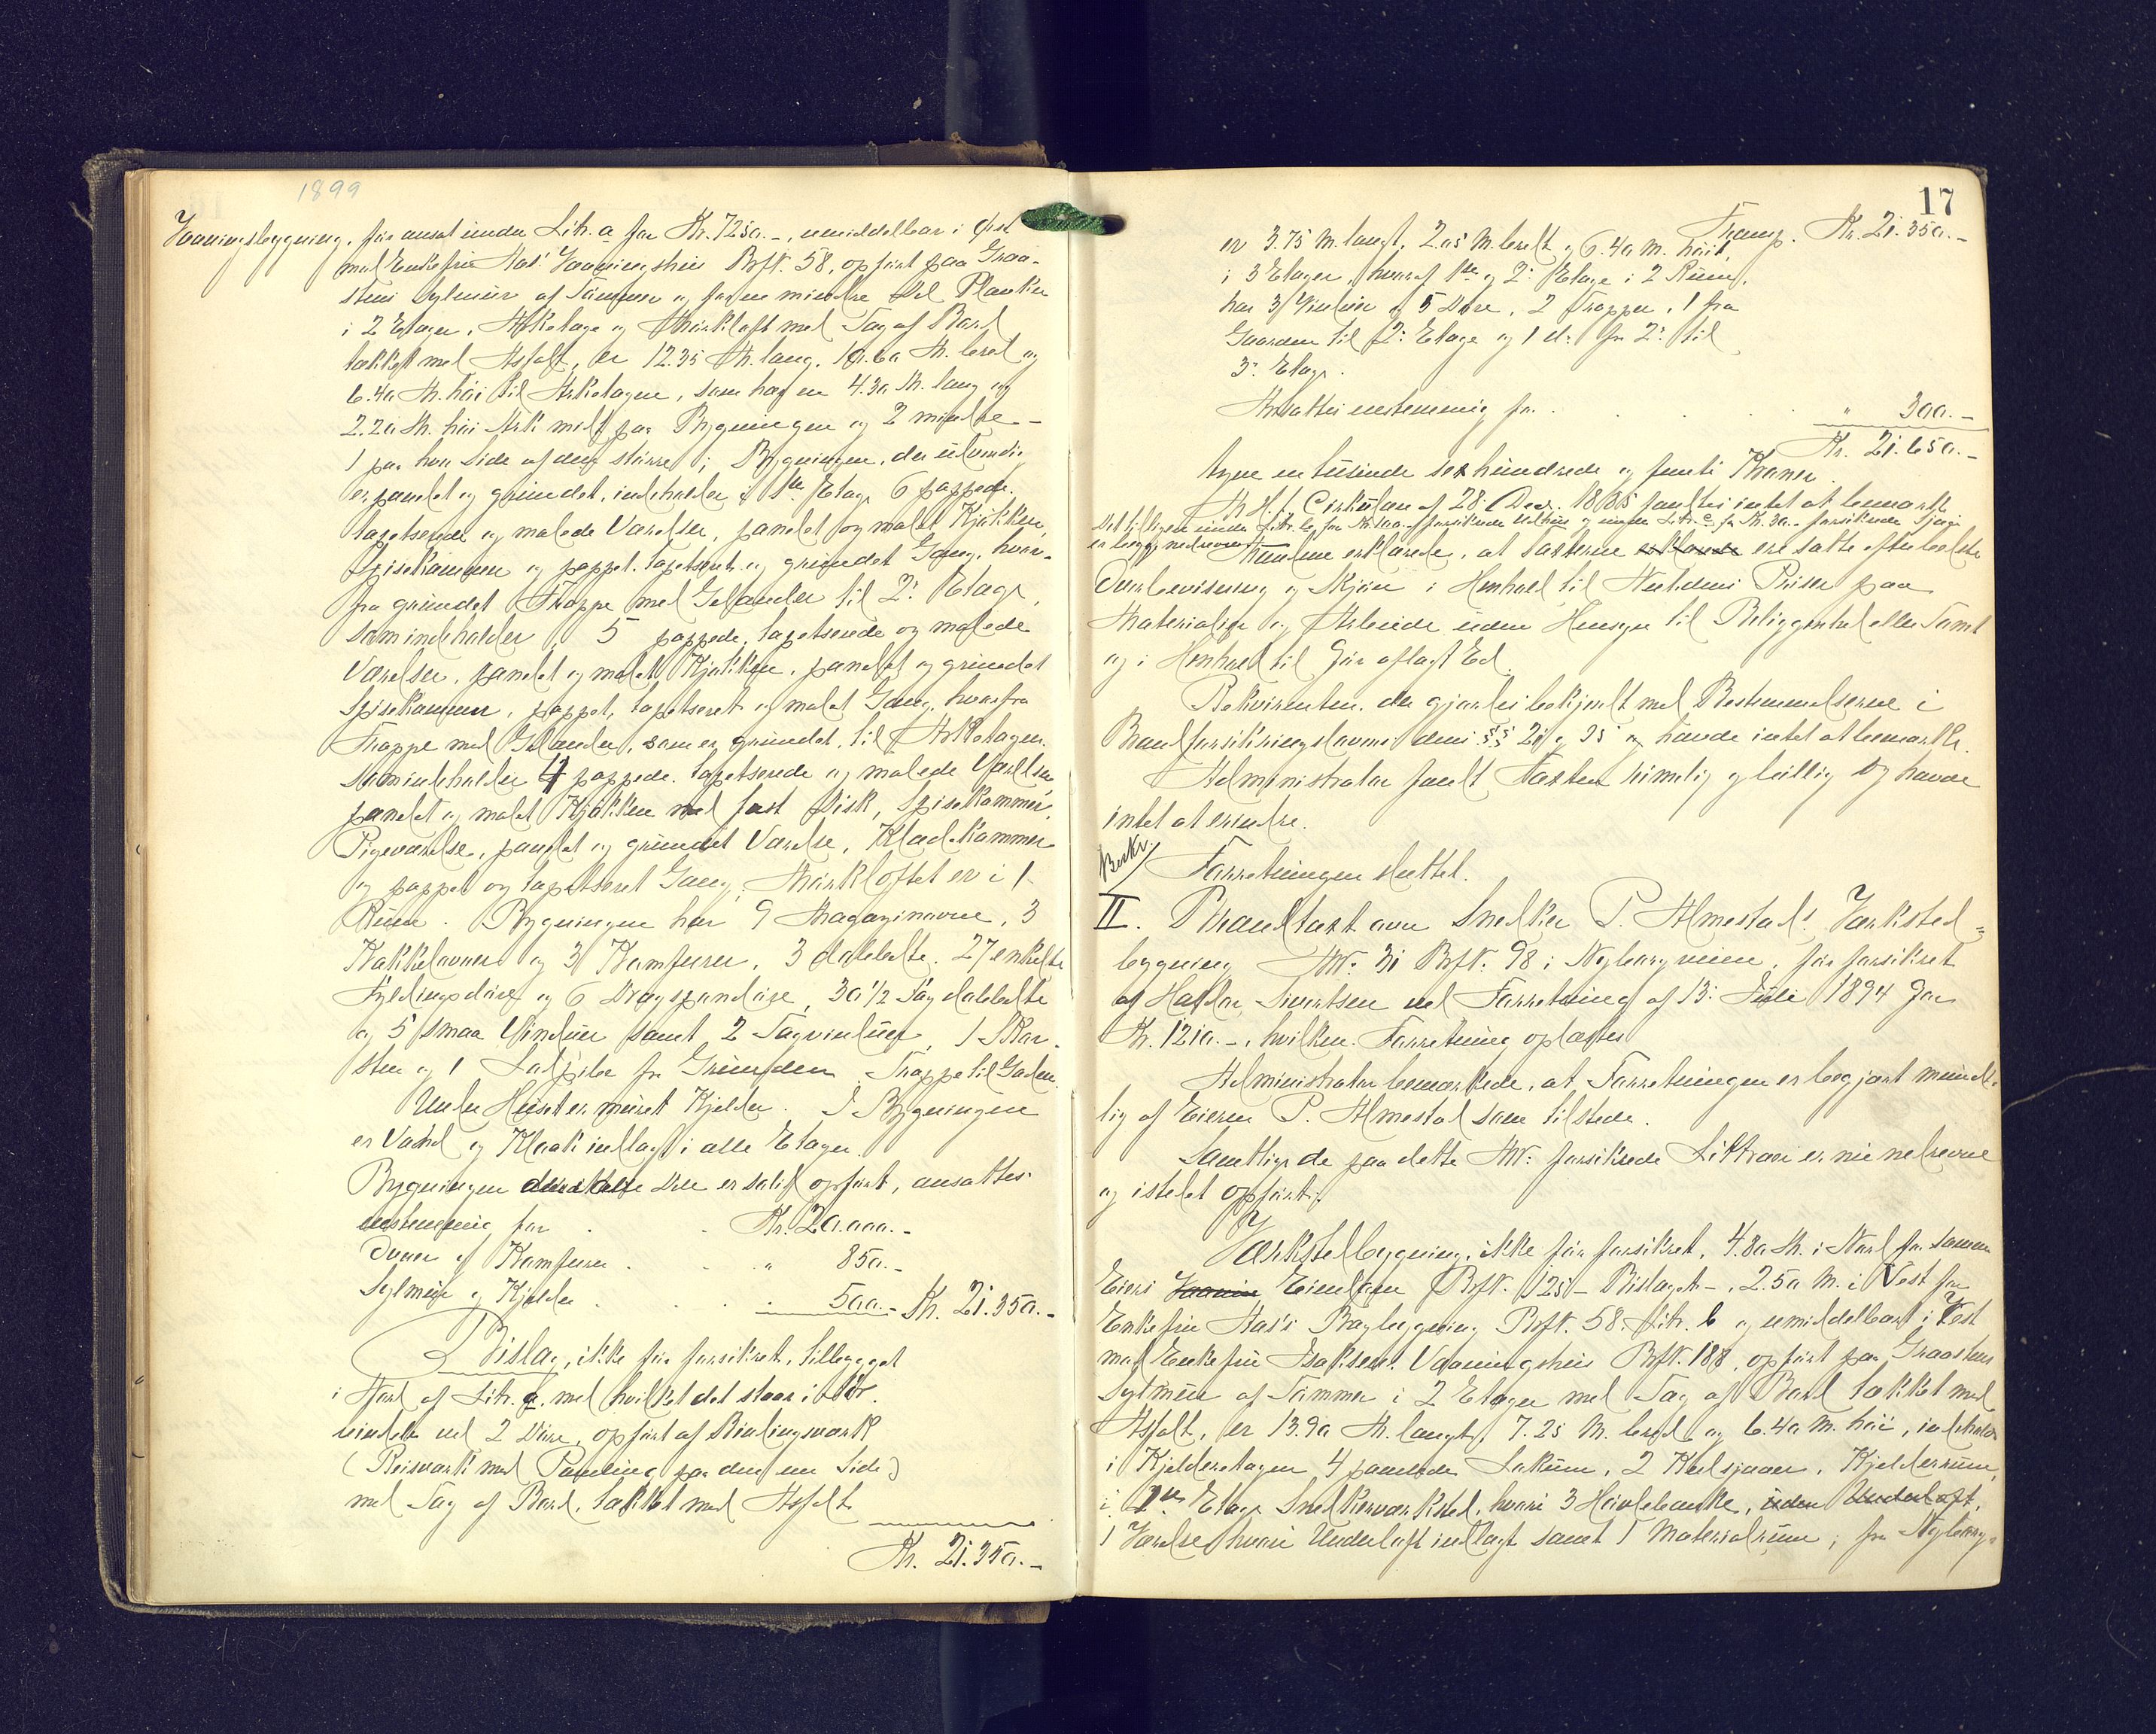 1899
Vaaningsbygning, før ansat under Litr. a for Kr. 7250.-, umiddelbar i Øst
med Enkefru Aas' Vaaningshus Brft. 58, opført paa Graa-
stens Sylmur af Tømmer og for en mindre Del Planker
i 2 Etager, Arketage og Mørkloft med Tag af Bord
tækket med Asfalt, er 12.35 M. lang, 10.60 M. bred og
6.40 M. høi til Arketagen, som har en 4.30 M. lang og
2.20 M. høi Ark midt paa Bygningen og 2 mindre -
1 paa hver Side af den større; Bygningen, der udvendig
er panelet og grundet, indeholder i 1ste Etage 6 pappede,
tapetserede og malede Værelser, panelet og malet Kjøkken,
Spisekammer og pappet, tapetseret og grundet Gang, hvor-
fra grundet Trappe med Gelænder til 2: Etage,
som indeholder 5 pappede, tapetserede og malede
Værelser, panelet og malet Kjøkken, panelet og grundet
Spisekammer, pappet, tapetseret og malet Gang, hvorfra
Trappe med Gelænder, som er grundet, til Arketagen,
som indeholder 4 pappede, tapetserede og malede Værelser,
panelet og malet Kjøkken med fast Disk, Spisekammer,
Pigeværelse, panelet og grundet Værelse, Klædekammer
og pappet og tapetseret Gang; Mørkloftet er i 1
Rum. Bygningen har 9 Magazinovne, 3
Kakkelovne og 3 Komfurer, 3 dobbelte, 27 enkelte
Fyldingsdøre og 6 Dragspandøre, 30 1/2 Fag dobbelte
og 5 smaa Vinduer samt 2 Tagvinduer, 1 Skor-
sten og 1 Lodpibe fra Grunden, Trappe til Gaden.
Under Huset er muret Kjelder. I Bygningen
er Vand og Kloak indlagt i alle Etager.
Bygningen der er solid opført, ansattes
enstemmig for . . Kr. 20.000.-
Ovner og Komfurer . . " 850.-
Sylmur og Kjelder . . . " 500.- Kr. 21.350.-
Bislag, ikke før forsikret, tilbygget
i Nord af Litr. a, med hvilket det staar i For-
bindelse ved 2 Døre, opført af Bindingsværk
(Reisværk med Panling paa den ene Side)
med Tag af Bord, tækket med Asfalt
Kr. 21.350.-
17
Transp. Kr. 21.350.-
er 3.75 M. langt, 2.05 M. bredt og 6.40 M. høit,
i 3 Etager, hvoraf 1ste og 2: Etage i 2 Rum,
har 3 Vinduer og 5 Døre, 2 Trapper, 1 fra
Gaarden til 2: Etage og 1 do fra 2: til
3: Etage.
Ansattes enstemmig for . . . . " 300.-
Kr. 21.650.-
tyve en tusinde sex hundrede og femti Kroner.
M. H. t. Cirkulære af 28: Decr. 1885 fandtes intet at bemærke.
Det tidligere under Litr. b for Kr. 100.- forsikrede Udhus og under Litr. c for Kr. 30.- forsikrede Sjaa
er begge nedrevne.
Mændene erklærede, at Taxterne erklærede ere satte efter bedste
Overbevisning og Skjøn i Henhold til Nutidens Priser paa
Materialier og Arbeide uden Hensyn til Beliggenhed eller Tomt
og i Henhold til før aflagt Ed.
Rekvirenten, der gjordes bekjendt med Bestemmelserne i
Brandforsikringslovens dens §§ 20 og 35 og havde intet at bemærke.
Administrator fandt Taxten rimelig og billig og havde
intet at erindre.
Beskr.
Forretningen sluttet.
II. Brandtaxt over Snedker P. Almestad's Værksted-
bygning Mtr: 31 Brft. 98 i Nyborgveien, før forsikret
af Haldor Sivertsen ved Forretning af 13: Juli 1894 for
Kr. 1210.-, hvilken Forretning oplæstes
Administrator bemærkede, at Forretningen er begjært mundt-
lig af Eieren P. Almestad som tilstede.
Samtlige de paa dette Mtr: forsikrede Littraer er nu nedrevne
og istedet opført:
Værkstedbygning, ikke før forsikret, 4.80 M. i Nord for samme
Eiers Vaanin Eiendom Brft. 125 - Bislaget -, 2.50 M. i Vest for
Enkefru Aas's Bagbygning Brft. 58. Litr. b og umiddelbart i Vest
med Enkefru Isaksens Vaaningshus Brft. 188, opført paa Graastens
Sylmur af Tømmer i 2 Etager med Tag af Bord tækket med
Asfalt, er 13.90 M. langt, 7.25 M. bred og 6.40 M. høi, indeholder
i Kjelderetagen 4 panelede Lokum, 2 Vedsjaaer, Kjelderrum,
i 1ste Etage Snedkerværksted, hvori 3 Høvlebænke, uden Underloft,
1 Værelse hvori Underloft indlagt samt 1 Materialrum; fra Nyborg-